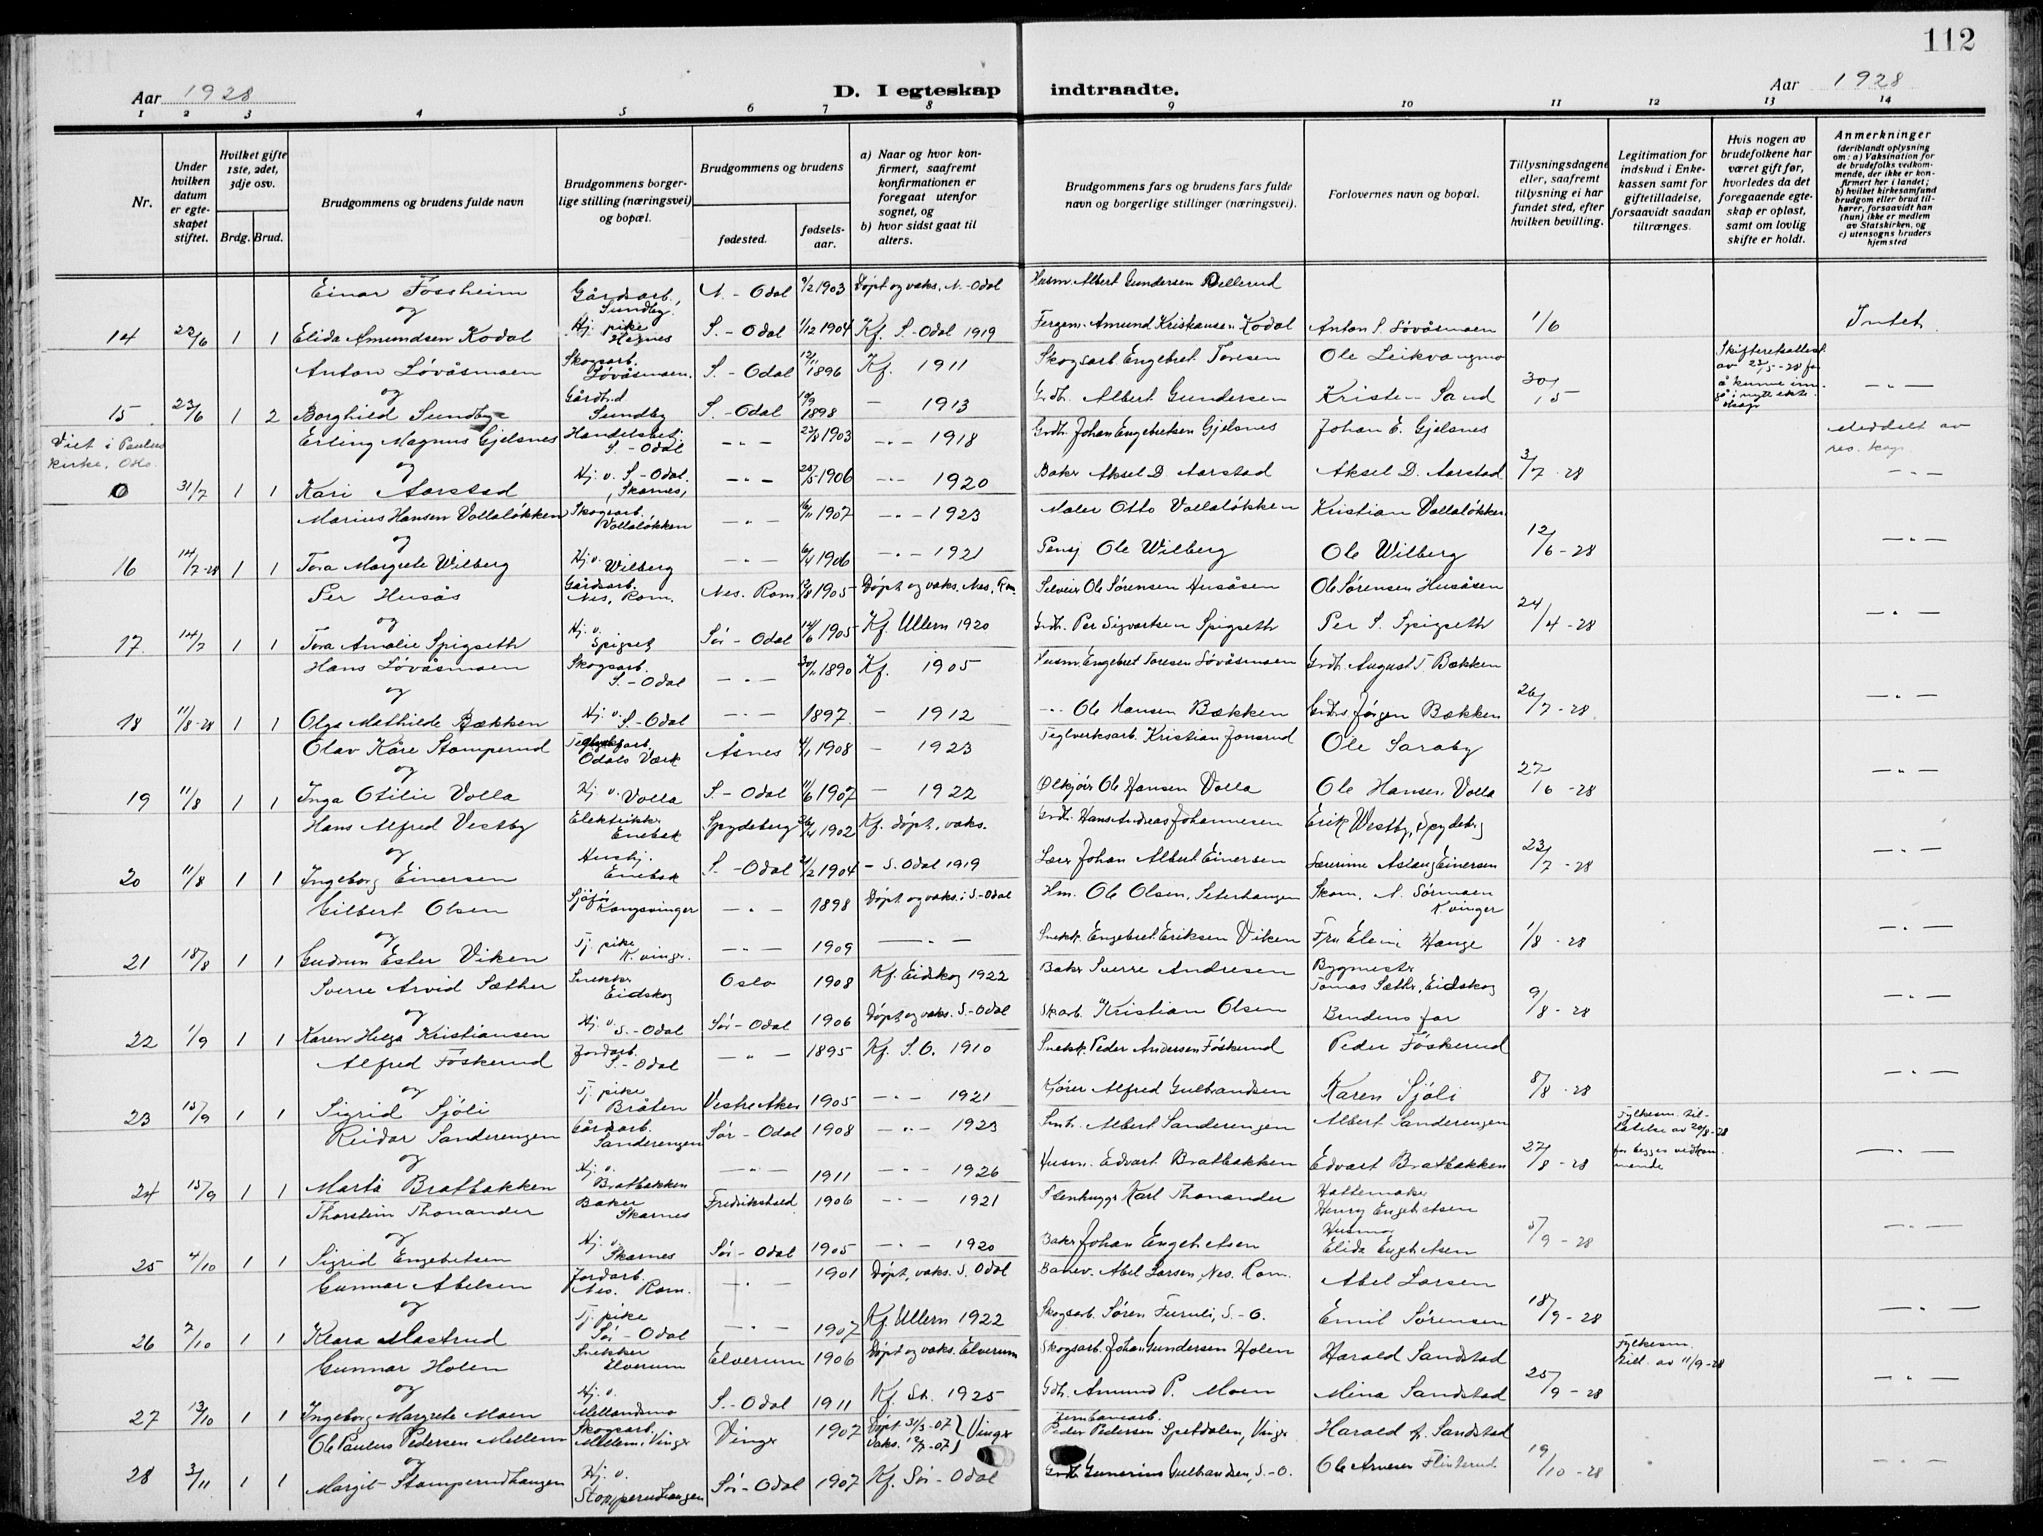 112
Aar 1928
D. I egteskap indtraadte.
Aar 1928
1 2 3 4 5 6 7 8 9 10 11 12 13 14
Nr.
Under hvilken datum er egteskapet stiftet.
Hvilket gifte 1ste, 2det, 3dje osv.
Brdg. Brud.
Brudgommens og brudens fulde navn
Brudgommens borgerlige stilling (næringsvei) og bopæl.
Brudgommens og brudens
fødested.
fødselsaar.
a) Naar og hvor konfirmert, saafremt konfirmationen er foregaat utenfor sognet, og
b) hvor sidst gaat til alters.
Brudgommens fars og brudens fars fulde navn og borgerlige stillinger (næringsvei).
Forlovernes navn og bopæl.
Tillysningsdagene eller, saafremt tillysning ei har fundet sted, efter hvilken bevilling.
Legitimation for indskud i Enkekassen samt for giftetilladelse, forsaavidt saadan tiltrænges.
Hvis nogen av brudefolkene har været gift før, hvorledes da det foregaaende egteskap er opløst, samt om lovlig skifte er holdt.
Anmerkninger (deriblandt oplysning om: a) Vaksination for de brudefolks vedkommende, der ikke er konfirmert her i landet; b) hvilket kirkesamfund brudgom eller brud tilhører, forsaavidt han (hun) ikke er medlem av Statskirken, og c) utensogns bruders hjemsted
Einar Fossheim Gårdsarb., Sundby. N.-Odal 9/2 1903 Døpt og vaks. N.-Odal Husm. Albert Gundersen Ollerud
og
14 23/6 1 1 Elida Amundsen Kodal Hj. pike Hernes S.-Odal 1/12 1904 Kf. S-Odal 1919 Fergem. Amund Kristiansen Kodal Anton S. Løvåsmoen 1/6 Intet.
Anton Løvåsmoen Skogsarb. Løvåsmoen. S.-Odal 12/11 1896 Kf. 1911 Skogsarb. Engebret Toresen Ole Leikvangmo Skifterettsattest av 22/5-28 for å kunne inngå i nytt ekteskap
og
15 23/6 1 2 Borghild Sundbye Gårdbr. Sundby S.-Odal 10/9 1898 — 1913 Grdbr. Albert Gundersen Kristen Sand 30/5 — " —
Viet i Paulus kirke, Oslo. Erling Magnus Gjelsnes Handelsbetj. S.-Odal — " — 23/8 1903 — " — 1918 Grdbr. Johan Engebretsen Gjelsnes Johan E. Gjelsnes Meddelt av res. kap.
og
O 31/7 1 1 Kari Aarstad Hj. v. S.-Odal, Skarnes, — " — 25/5 1906 — " — 1920 Baker Aksel D. Aarstad Aksel D. Aarstad 3/7 -28 — " —
Marius Hansen Vollaløkken Skogsarb. Vollaløkken — " — 16/11 1907 — " — 1923 Maler Otto Vollaløkken Kristian Vollaløkken
og
16 14/7-28 1 1 Tora Margrete Wilberg Hj. v. Wilberg — " — 6/4 1906 — " — 1921 Pensj. Ole Wilberg Ole Wilberg 12/6 -28 — " —
Per Husås Gårdsarb. Nes, Rom. Nes. Rom 12/8 1905 Døpt og vaks. Nes, Rom. Selveier Ole Sørensen Husåsen Ole Sørensen Husåsen
og
17 14/7 1 1 Tora Amalie Spigseth Hj. v. Spigset Sør-Odal 14/6 1905 Kf. Ullern 1920 Grdbr. Per Sigvartsen Spigseth Per S. Spigseth 24/4 -28 — " —
Hans Løvåsmoen Skogsarb. S.-Odal — " — 30/11 1890 Kf. 1905 Husm. Engebret Toresen Løvåsmoen Grdbr. August T. Bækken
og
18 11/8-28 1 1 Olga Mathilde Bækken Hj. v. S-Odal — " — 1897 — 1912 — " — Ole Hansen Bækken Grdbr. Jørgen Bækken 26/7 -28 — " —
Olav Kåre Stamperud Teglverksarb. Odals Værk Åsnes 4/1 1908 — 1923 Teglverksarb. Kristian Jonsrud Ole Saraby
og
19 11/8 1 1 Inga Otilie Volla Hj. v. Volla S.-Odal 11/6 1907 — 1922 Ølkjører Ole Hansen Volla Ole Hansen Volla 27/6 -28 — " —
Hans Alfred Vestby Elektriker Enebak Spydeberg 26/4 1902 Kf. døpt, vaks. Grdbr. Hans Andreas Johannesen Erik Westby, Spydeberg
og
20 11/8 1 1 Ingeborg Einersen Hushj. Enebak S.-Odal 21/2 1904 — S. Odal 1919 Lærer Johan Albert Einersen Lærerinne Aslaug Einersen 23/7 -28 — " —
Gilbert Olsen Sjåfør Kongsvinger — " — 1898 Døpt og vaks. i S.-Odal Hm. Ole Olsen, Seterhangen Skom. N. Sørmoen K.vinger
og
21 18/8 1 1 Gudrun Ester Viken Tj. pike K.vinger. — " — 1909 — " — Snekk. Engebret Eriksen Viken Fru Eleni Hauge 1/8 -28 — " —
Sverre Arvid Sæther Snekker Eidskog Oslo 1908 Kf. Eidskog 1922 Baker Sverre Andresen Bygmester Tomas Sæther, Eidskog
og
22 1/9 1 1 Karen Helga Kristiansen Hj. v. S.-Odal Sør-Odal 1906 Døpt og vaks. S.-Odal Skarb. Kristian Olsen Brudens far 9/8 -28 — " —
Alfred Føskerud Jordarb. S.-Odal — " — 1895 Kf. S.O. 1910 Snekk. Peder Andersen Føskerud Peder Føskerud
og
23 15/9 1 1 Sigrid Sjøli Tj. pike Bråten Vestre Aker 1905 — " — 1921 Kjører Alfred Gulbrandsen Karen Sjøli 8/8 -28 — " —
Reidar Sanderengen Gårdsarb. Sanderengen Sør-Odal 1908 — " — 1923 Smbr. Albert Sanderengen Albert Sanderengen Fylkesm. tillatelse av 20/8-28 for begges vedkommende
og
24 15/9 1 1 Marta Bratbakken Hj. v. Bratbakken — " — 1911 — " — 1926 Husm. Edvart Bratbakken Edvart Bratbakken 27/8 -28 — " —
Thorstein Thonander Baker Skarnes Fredrikstad 1906 — " — 1921 Stenhugger Karl Thonander Hattemaker Henry Engebretsen
og
25 4/10 1 1 Sigrid Engebretsen Hj. v. Skarnes Sør-Odal 1905 — " — 1920 Baker Johan Engebretsen Husmor Elida Engebretsen 5/9 -28 — " —
Gunnar Abelsen Jordarb. Nes. Rom. — " — 1901 Døpt, vaks. S. Odal Banev. Abel Larsen, Nes. Rom. Abel Larsen
og
26 7/10 1 1 Klara Mastrud Tj. pike Sør-Odal — " — 1907 Kf. Ullern 1922 Skogsarb. Søren Furuli, S.-O. Emil Sørensen 18/9 -28 — " —
Gunnar Holen Snekker Elverum Elverum 1906 Døpt og vaks. Elverum Skogsarb. Johan Gundersen Holen Harald Sandstad Fylkesm. till. av 11/9-28
og
27 13/10 1 1 Ingeborg Margrete Moen Hj. v. Mellandsmo S.-Odal 1911 Kf. Str. 1925 Gdbr. Amund P. Moen Mina Sandstad 25/9 -28 — " —
Ole Paulus Pedersen Mellem Skogsarb. Mellem, Vinger Vinger 1907 Døpt 31/3-07 vaks. 12/7-07 } Vinger Jernbanearb. Peder Pedersen Spetdalen, Vinger Harald f. Sandstad
og
28 3/11 1 1 Margit Stamperudhaugen Hj. v. Stomperudhaugen Sør-Odal 1907 Kf. Sør-Odal Grdbr. Gunerius Gulbrandsen, S.-O. Ole Arnesen Flinterud 19/10 -28 — " —